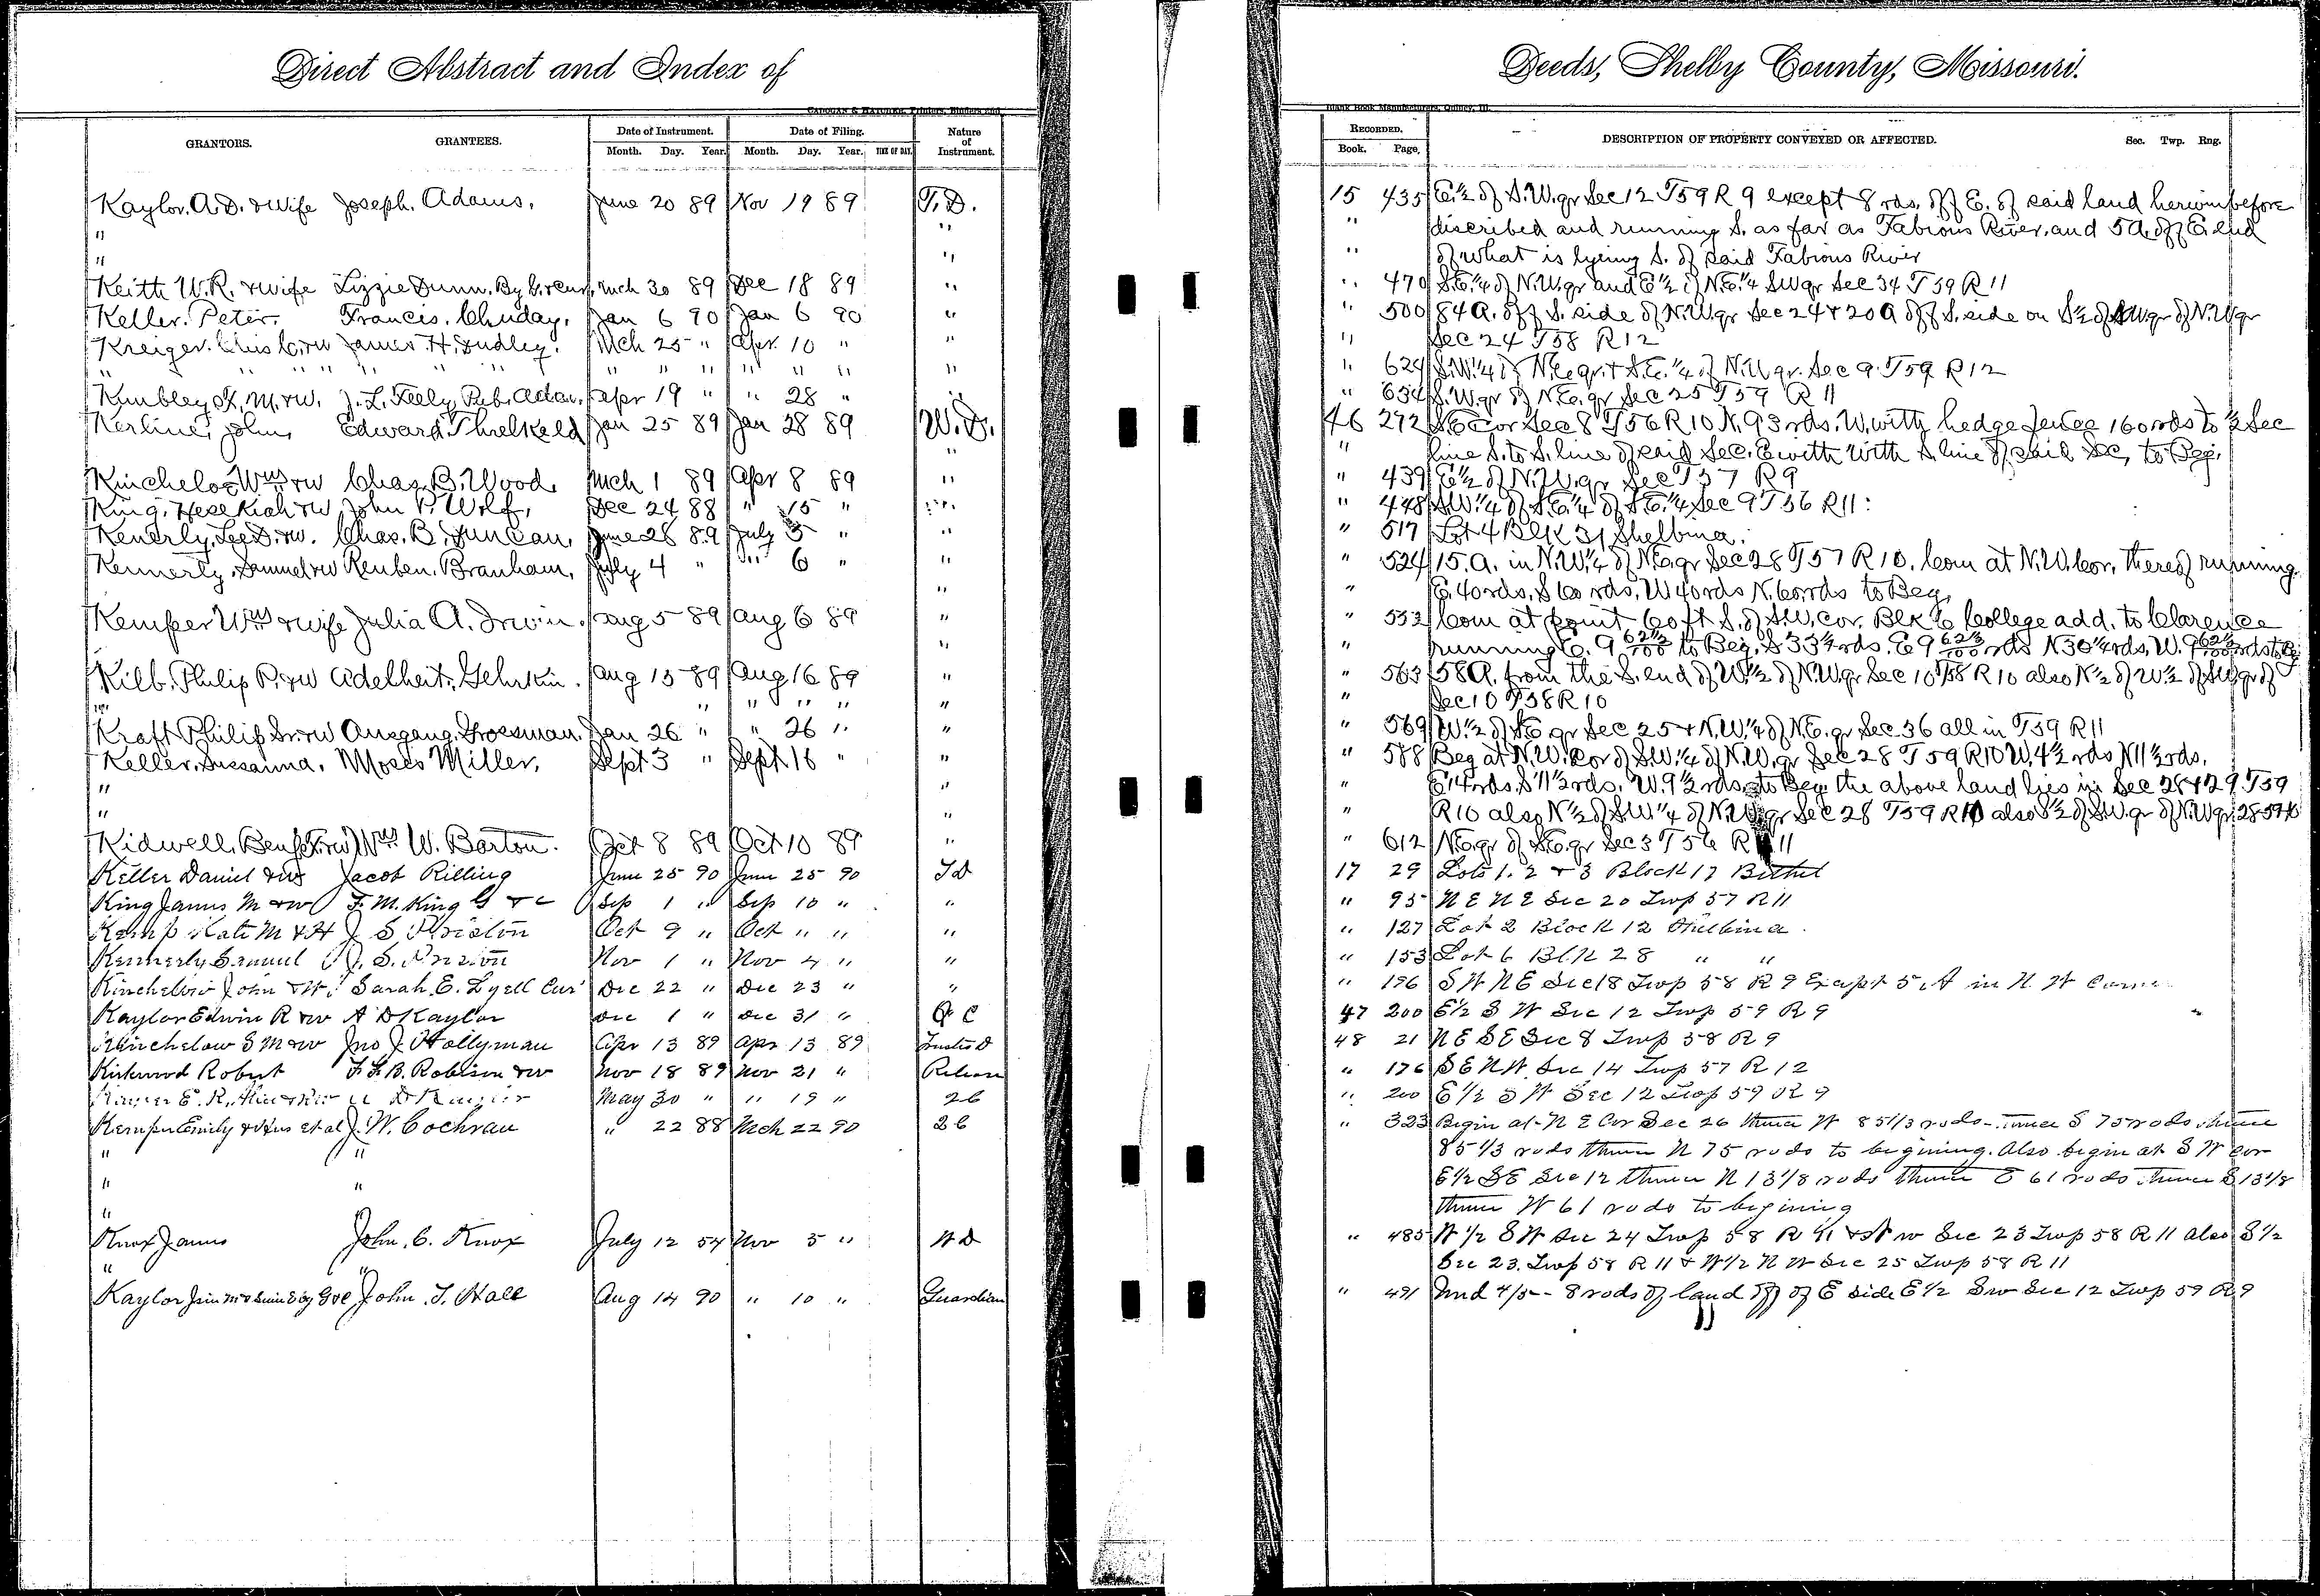 Direct Abstract and Index of
GRANTORS. GRANTEES. Date of Instrument. Date of Filing. Nature of Instrument.
Month. Day. Year. Month. Day. Year. TIME OF DAY.
Kaylor. A. D. & Wife Joseph. Adams. June 20 89 Nov 19 89 T. D.
" "
" "
Keith W. R. & Wife Lizzie Dunn. By Mch 30 89 Dec 18 89 "
Keller. Peter. Francis. Chuday. Jan 6 90 Jan 6 90 "
Kreiger. James H. Dudley. Mch 25 " Apr. 10 " "
" " " " " " " " " "
Kimbley J. L. Feely Apr 19 " " 28 " "
Kerline, John, Edward. Threlkeld Jan 25 89 Jan 28 89 W. D.
"
Kincheloe Wm & w Chas. B. Wood. Mch 1 89 Apr 8 89 "
King. Hezekiah & w John P. Wolf, Dec 24 88 " 15 " "
Kenerly, Lee D. & w. Chas. B. Duncan, June 28 89 July 5 " "
Kennerly, Samuel & w Reuben. Branham, July 4 " " 6 " "
"
Kemper Wm & Wife Julia A. Irwin. Aug 5 89 Aug 6 89 "
"
Kilb. Philip P. & w Adelheit. Gehrkin. Aug 15 89 Aug 16 89 "
" " " " " " "
Kraft Philip Sr. & w Ausgang. Grossman. Jan 26 " " 26 " "
Keller, Sussanna, Moses Miller, Sept 3 " Sept. 16 " "
" "
" "
Kidwell. Benj. F. & w Wm. W. Barton. Oct 8 89 Oct 10 89 "
Keller Daniel & wf Jacob Rilling June 25 90 June 25 90 T D
King James M & w F. M. King Sep 1 " Sep 10 " "
Kemp Kate M & H J S Preston Oct 9 " Oct " " "
Kennerly Samuel J. S. Preston Nov 1 " Nov 4 " "
John & W. Sarah. E. Lyell Cur Dec 22 " Dec 23 " "
Kaylor Edwin R & w A D Kaylor Dec 1 " Dec 31 " Q C
Kinchelow S M & w Jno J. Hollyman Apr 13 89 Apr 13 89 Trustee D
Kirkwood Robert F. L. B. Robison & w Nov 18 89 Nov 21 " Release
E. R. A D Kaylor May 30 " " 19 " 2C
Kemper Emily & Hus et al J. W. Cochran " 22 88 Mch 22 90 2C
" "
" "
"
Knox James John. C. Knox July 12 54 Nov 5 " W D
" "
Kaylor John. T. Hall Aug 14 90 " 10 " Guardian
Deeds, Shelby County, Missouri.
Blank Book Manufacturers, Quincy, Ill.
RECORDED. DESCRIPTION OF PROPERTY CONVEYED OR AFFECTED. Sec. Twp. Rng.
Book. Page.
15 435 E. ½ of S. W. qr Sec 12 T59 R 9 except 8 rds. off E. of said land herinbefore
" discribed and running S. as far as Fabious River, and 5 A. off E. end
" of what is lyeing S. of said Fabious River
" 470 S. E. ¼ of N. W. qr and E ½ of N. E. ¼ SW qr Sec 34 T 59 R 11
" 500 84 A. off S. side of N. W. qr Sec 24 & 20 A off S. side on S ½ of SW qr of N. W qr
" Sec 24 T58 R12
" 624 S. W. ¼ of N. E qr. & S. E. ¼ of N. W qr. Sec 9. T59 R 12
" 634 S. W. qr of N. E. qr Sec 25 T59 R 11
46 272 S E Cor Sec 8 T56 R 10 N. 93 rds. W. with hedge fence 160 rds to ½ Sec
" line S. to S. line of said Sec. E with With S. line of said Sec, to Beg.
" 439 E ½ of N. W. qr Sec T57 R 9
" 448 S. W. ¼ of S. E. ¼ of S. E. ¼ Sec 9 T56 R 11.
" 517 Lot 4 Blk 31 Shelbina.
" 524 15. A. in N. W. ¼ of N. E. qr Sec 28 T57 R 10. Com at N. W. Cor. thereof running
" E. 40 rds, S 60 rds, W 40 rds N. 60 rds to Beg,
" 532 Com at point 60 ft S. of S. W. Cor. Blk 6 College add. to Clarence
" running E. 9 62½/100 to Beg. S 33¼ rds. E 9 62½/100 rds N 30¼ rds, W. 9 62½/100 rds to Beg
" 563 58 A. from the S. end of W. ½ of N. W. qr Sec 10 T58 R 10 also N ½ of W. ½ of S W. qr of
" Sec 10 T58 R 10
" 569 W. ½ of S. E. qr Sec 25 & N. W. ¼ of N. E. qr Sec 36 all in T59 R 11
" 588 Beg at N. W. Cor of S. W. ¼ of N. W. qr Sec 28 T59 R10 W. 4 ½ rds N 11 ½ rds.
" E. 14 rds. S 11 ½ rds. W. 9 ½ rds to Beg. the above land lies in Sec 28 & 29 T59
" R 10 also N ½ of S W ¼ of N. W. qr Sec 28 T59 R 10 also S ½ of S. W. qr of N. W qr. 28 59 10
" 612 N. E. qr of S. E. qr Sec 3 T56 R 11
17 29 Lots 1. 2 & 3 Block 17 Bethel
" 95 N E N E Sec 20 Twp 57 R 11
" 127 Lot 2 Block 12 Shelbina.
" 153 Lot 6 Blk 28 " "
" 196 S W N E Sec 18 Twp 58 R 9 Except 5. A in N. W Corner
47 200 E ½ S W Sec 12 Twp 59 R 9
48 21 N E S E Sec 8 Twp 58 R 9
" 176 S E N W. Sec 14 Twp 57 R 12
" 200 E ½ S W Sec 12 Twp 59 R 9
" 323 Begin at N E Cor Sec 26 thence W 85 1/3 rods - thence S 75 rods thence
85 1/3 rods thence N 75 rods to begining. Also begin at S W Cor
E ½ S E Sec 12 thence N 13 1/8 rods thence E 61 rods thence S 13 1/8
thence W 61 rods to begining
" 485 W ½ S W Sec 24 Twp 58 R 11 Sec 23 Twp 58 R 11 Also S ½
Sec 23. Twp 58 R 11 & W ½ N W Sec 25 Twp 58 R 11
" 491 Und 4/5 - 8 rods of land off of E side E ½ S W Sec 12 Twp 59 R 9